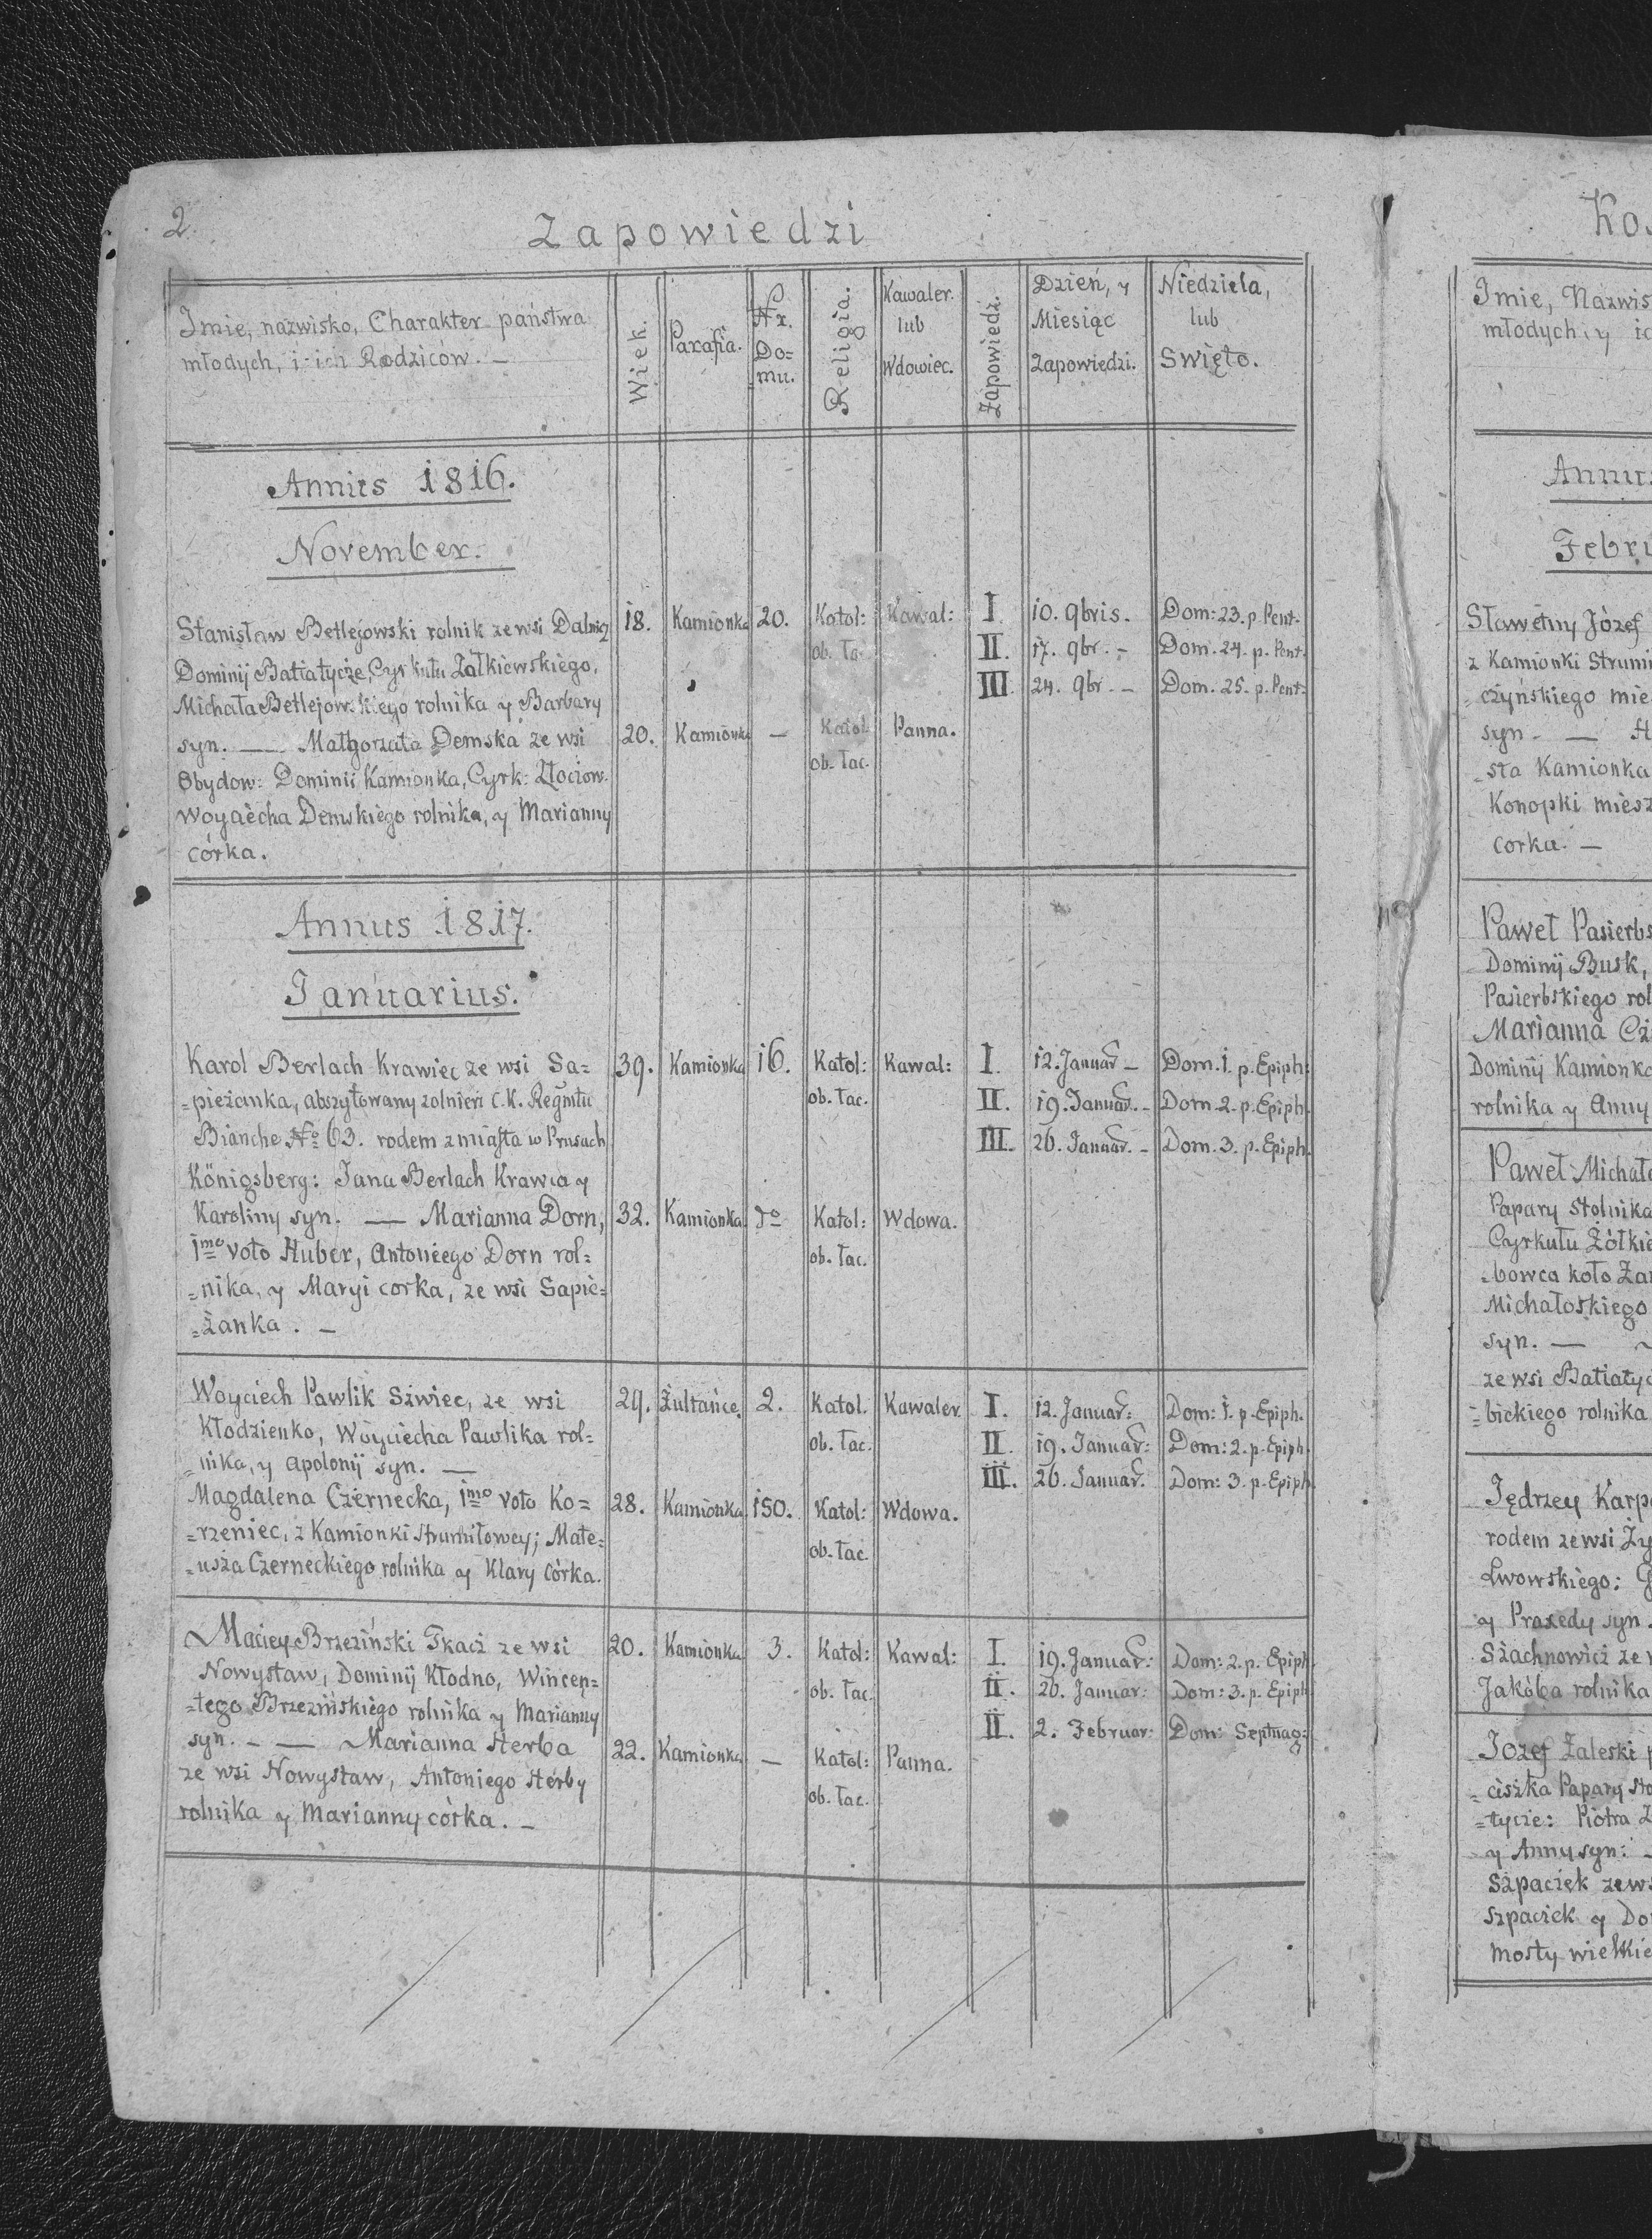 2.
Zapowiedzi
Imie, nazwisko, Charakter państwa
młodych, i ich Rodziców. —
Wiek.
Parafia.
Nr.
Do=
mu.
Religia.
Kawaler
lub
Wdowiec.
Zapowiedź.
Dzień, y
Miesiąc
Zapowiedzi.
Niedziela,
lub
Swięto.
Annus 1816.
November.
Stanisław Betlejowski rolnik ze wsi Dalnicz 18. Kamionka 20. Katol: Kawal: I. 10. 9bris. Dom: 23. p. Pent.
Dominij Batiatycze, Cyrkułu Zołkiewskiego, ob. ła. II. 17. 9br. — Dom. 24. p. Pent.
Michała Betlejowskiego rolnika y Barbary III. 24. 9br — Dom. 25. p. Pent.
syn. — Małgorzata Demska ze wsi 20. Kamionka — Katol. Panna.
Obydow: Dominii Kamionka, Cyrk: Złoczow. ob. łac.
Woyciecha Demskiego rolnika, y Marianny
córka.
Annus 1817.
Januarius.
Karol Berlach Krawiec ze wsi Sa= 39. Kamionka 16. Katol: Kawal: I. 12. Januar — Dom. 1. p. Epiph:
=pieżanka, abszytowany zołnierz C. K. Regmtu ob. łac. II. 19. Januar. — Dom. 2. p. Epiph.
Bianche No 63. rodem z miasta w Prusach III. 26. Januar. — Dom. 3. p. Epiph.
Königsberg: Jana Berlach Krawca y
Karoliny syn. — Marianna Dorn, 32. Kamionka do Katol: Wdowa.
1mo voto Huber, Antoniego Dorn rol= ob. łac.
=nika, y Maryi corka, ze wsi Sapie=
=żanka. —
Woyciech Pawlik Szwiec, ze wsi 29. Żułtańce. 2. Katol. Kawaler. I. 12. Januar: Dom: 1. p. Epiph.
Kłodzienko, Woyciecha Pawlika rol= ob. łac. II. 19. Januar: Dom: 2. p. Epiph.
=nika, y Apolonij syn. — III. 26. Januar. Dom: 3. p. Epiph
Magdalena Czernecka, 1mo voto Ko= 28. Kamionka 150. Katol: Wdowa.
=rzeniec, z Kamionki Strumiłowey; Mate= ob. łac.
=usza Czerneckiego rolnika y Klary Córka.
Maciey Brzeziński Tkacz ze wsi 20. Kamionka 3. Katol: Kawal: I. 19. Januar: Dom: 2. p. Epiph
Nowystaw, Dominij Kłodno, Wincen= ob. łac. II. 26. Januar: Dom: 3. p. Epiph
=tego Brzezińskiego rolnika y Marianny II. 2. Februar: Dom: Septuag:
syn. — — Marianna Herba 22. Kamionka — Katol: Panna.
ze wsi Nowystaw, Antoniego Herby ob. łac.
rolnika y Marianny córka. —
Imie, Nazwis
młodych, y ic
Febru
Sławetny Józef
z Kamionki Strumi
czyńskiego mie
syn. —
sta Kamionka
Konopki miesz
corka. —
Paweł Pasierbs
Dominij Busk,
Pasierbskiego rol
Marianna Cz
Dominij Kamionka
rolnika y Anny
Paweł Michało
Papary Stolnika
Cyrkułu Żółkie
bowca koło Zam
Michałoskiego
syn. —
ze wsi Batiatyc
=bickiego rolnika
Jędrzey Karp
rodem ze wsi Ży
Lwowskiego:
y Praxedy syn.
Szachnowicz ze w
Jakóba rolnika
Jozef Zaleski p
ciszka Papary Sto
=tycze: Piotra Z
y Anny syn:
Szpaciek ze ws
Szpaciek y Do
Mosty wielkie